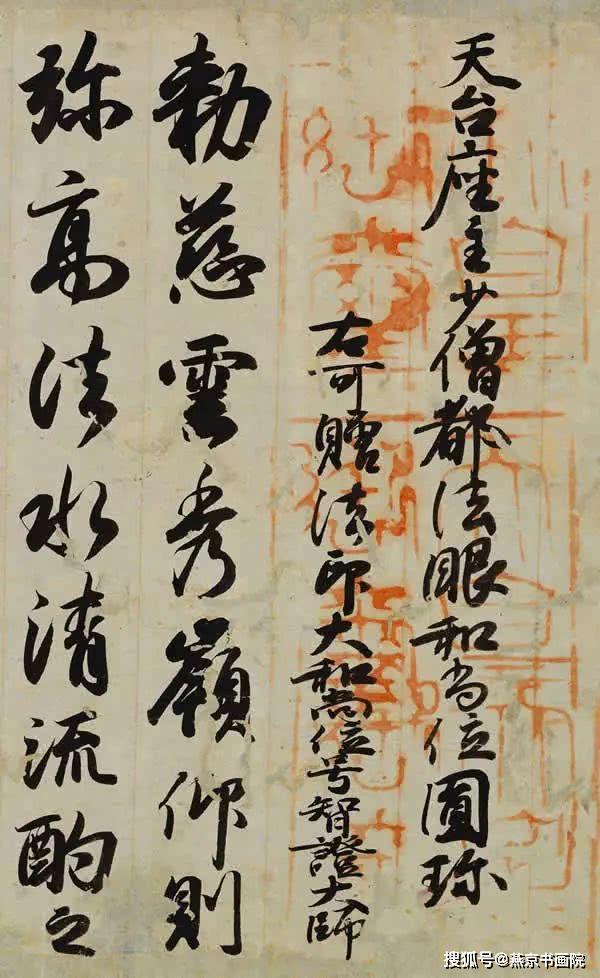 天台座主少僧都法眼和尚位圓珎
右可贈法印大和尚位号智證大師
勅慈雲秀嶺仰則
弥高法水清流酌之
搜狐号@燕京书画院